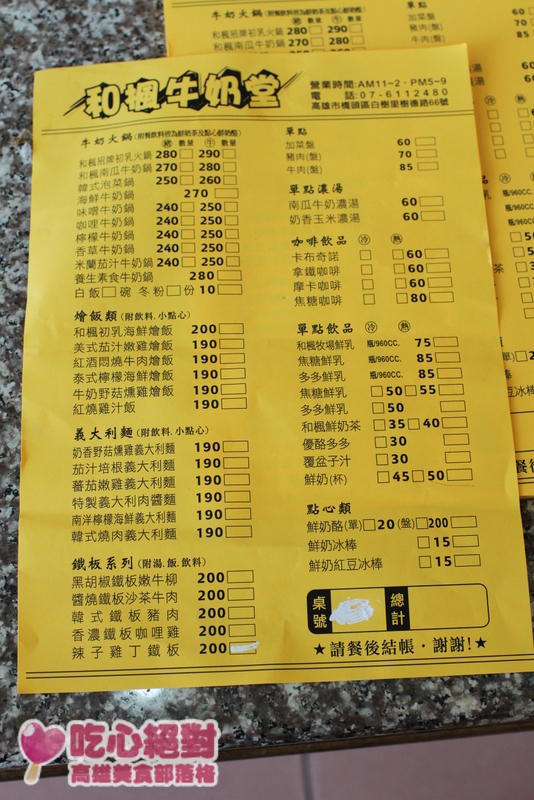 和楓牛奶堂
營業時間:AM11~2‧PM5~9
電　話:07-6112480
高雄市橋頭區白樹里樹德路66號
牛奶火鍋(附餐飲料皆為鮮奶茶及點心鮮奶酪)
豬 數量 牛 數量
和楓招牌初乳火鍋 280 290
和楓南瓜牛奶鍋 270 280
韓式泡菜鍋 250 260
海鮮牛奶鍋 270
味噌牛奶鍋 240 250
咖哩牛奶鍋 240 250
檸檬牛奶鍋 240 250
香草牛奶鍋 240 250
米蘭茄汁牛奶鍋 240 250
養生素食牛奶鍋 280
白飯 碗 冬粉 份 10
燴飯類(附飲料.小點心)
和楓初乳海鮮燴飯 200
美式茄汁嫩雞燴飯 190
紅酒悶燒牛肉燴飯 190
泰式檸檬海鮮燴飯 190
牛奶野菇燻雞燴飯 190
紅燒雞汁飯 190
義大利麵(附飲料.小點心)
奶香野菇燻雞義大利麵 190
茄汁培根義大利麵 190
蕃茄嫩雞義大利麵 190
特製義大利肉醬麵 190
南洋檸檬海鮮義大利麵 190
韓式燒肉義大利麵 190
鐵板系列(附湯.飯.飲料)
黑胡椒鐵板嫩牛柳 200
醬燒鐵板沙茶牛肉 200
韓式鐵板豬肉 200
香濃鐵板咖哩雞 200
辣子雞丁鐵板 200
單點
加菜盤 60
豬肉(盤) 70
牛肉(盤) 85
單點濃湯
南瓜牛奶濃湯 60
奶香玉米濃湯 60
咖啡飲品 冷 熱
卡布奇諾 60
拿鐵咖啡 60
摩卡咖啡 60
焦糖咖啡 80
單點飲品 冷 熱
和楓牧場鮮乳 瓶/960CC. 75
焦糖鮮乳 瓶/960CC. 85
多多鮮乳 瓶/960CC. 85
焦糖鮮乳 50 55
多多鮮乳 50
和楓鮮奶茶 35 40
優酪多多 30
覆盆子汁 30
鮮奶(杯) 45 50
點心類
鮮奶酪(單) 20 (盤) 200
鮮奶冰棒 15
鮮奶紅豆冰棒 15
桌號
總計
★請餐後結帳‧謝謝!★
牛奶火鍋(附餐飲料皆為鮮奶茶及點心鮮奶酪)
豬 數量 牛 數量
和楓招牌初乳火鍋 280 290
和楓南瓜牛奶鍋 270 280
單點
加菜盤 60
豬肉(盤) 70
85
吃心絕對
高雄美食部落格